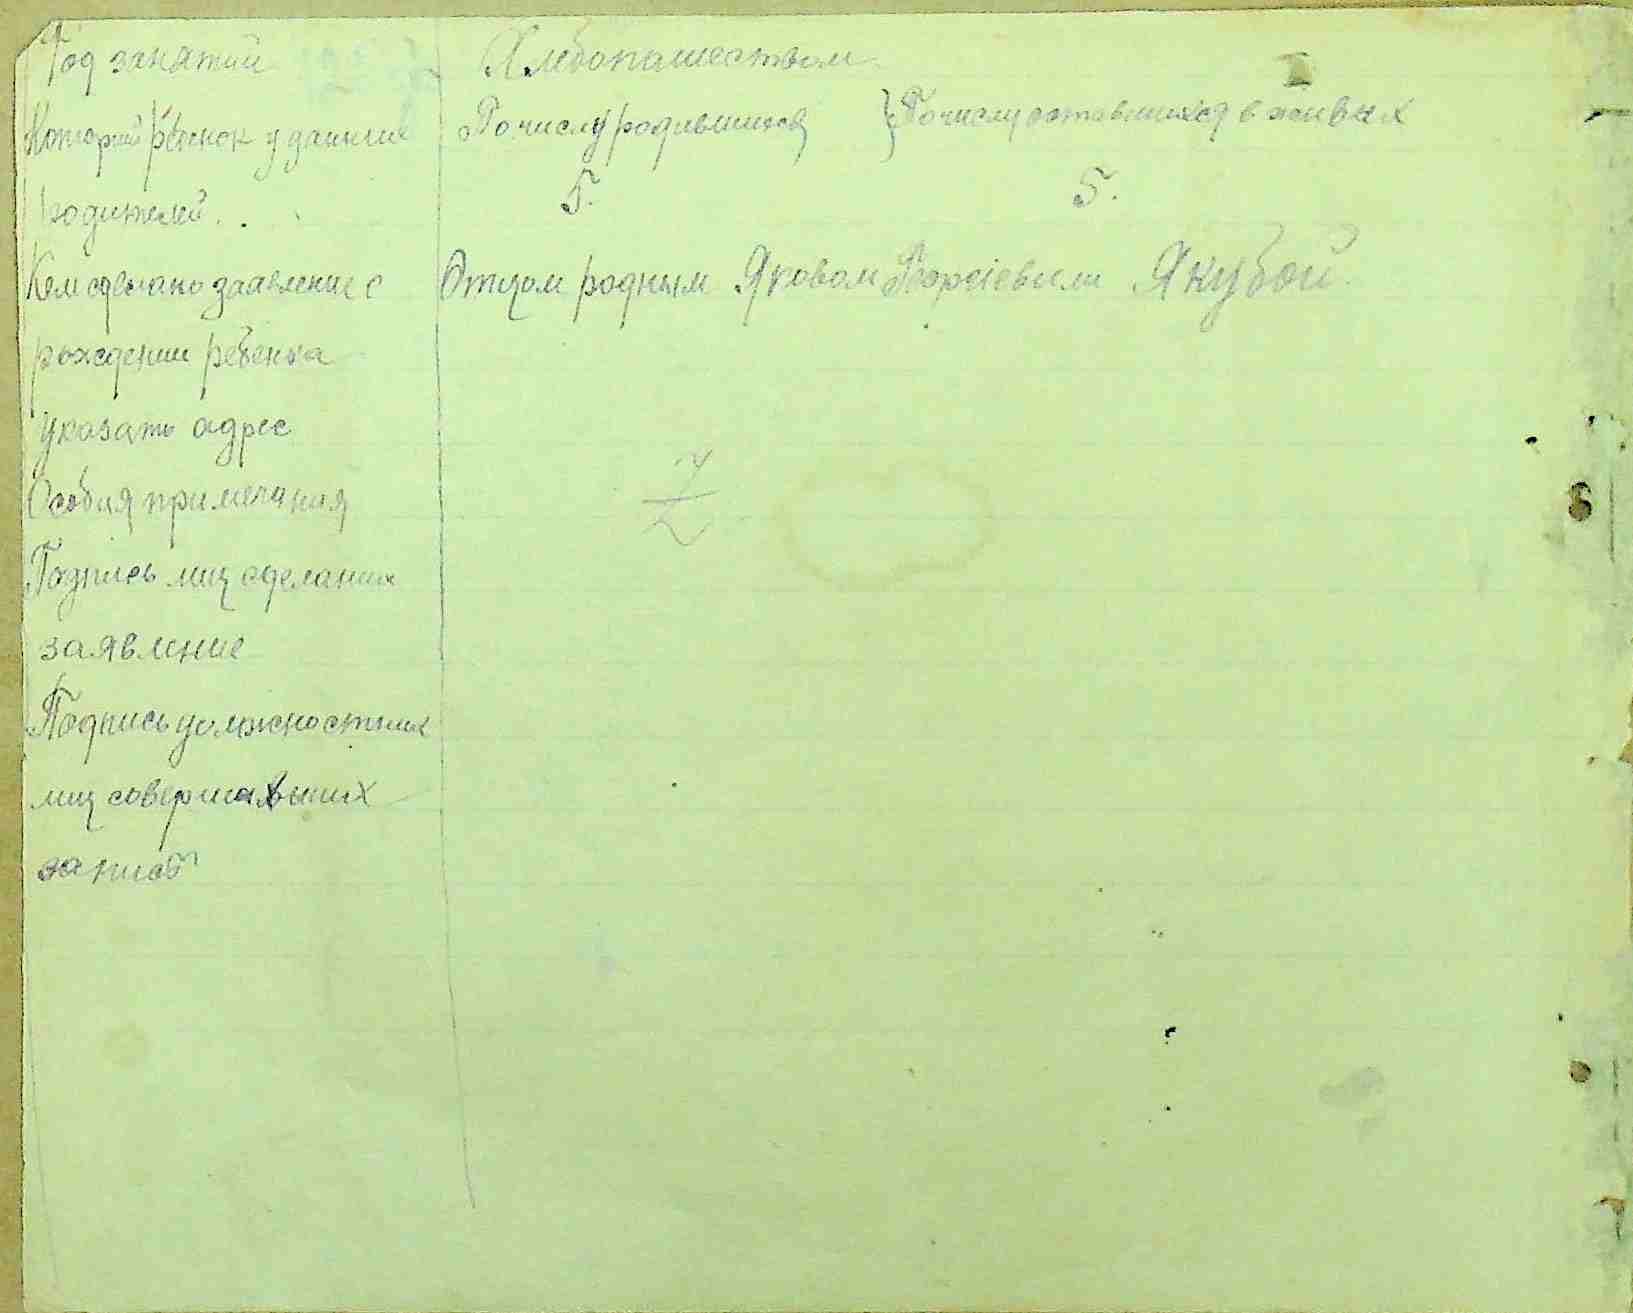 Род занятий Хлебопашеством
Которий ребенок у данних По числу родившихся } По числу оставшихся в живых
родителей. . 5. 5.
Кем сделано заавление о Отцом родным Яковом Георгіевичем Якубой.
рождении ребенка
указать адрес
Особия примечания Z
Подпись лиц сделаших
заявление
Подпись должностных
лиц совершавших
запись